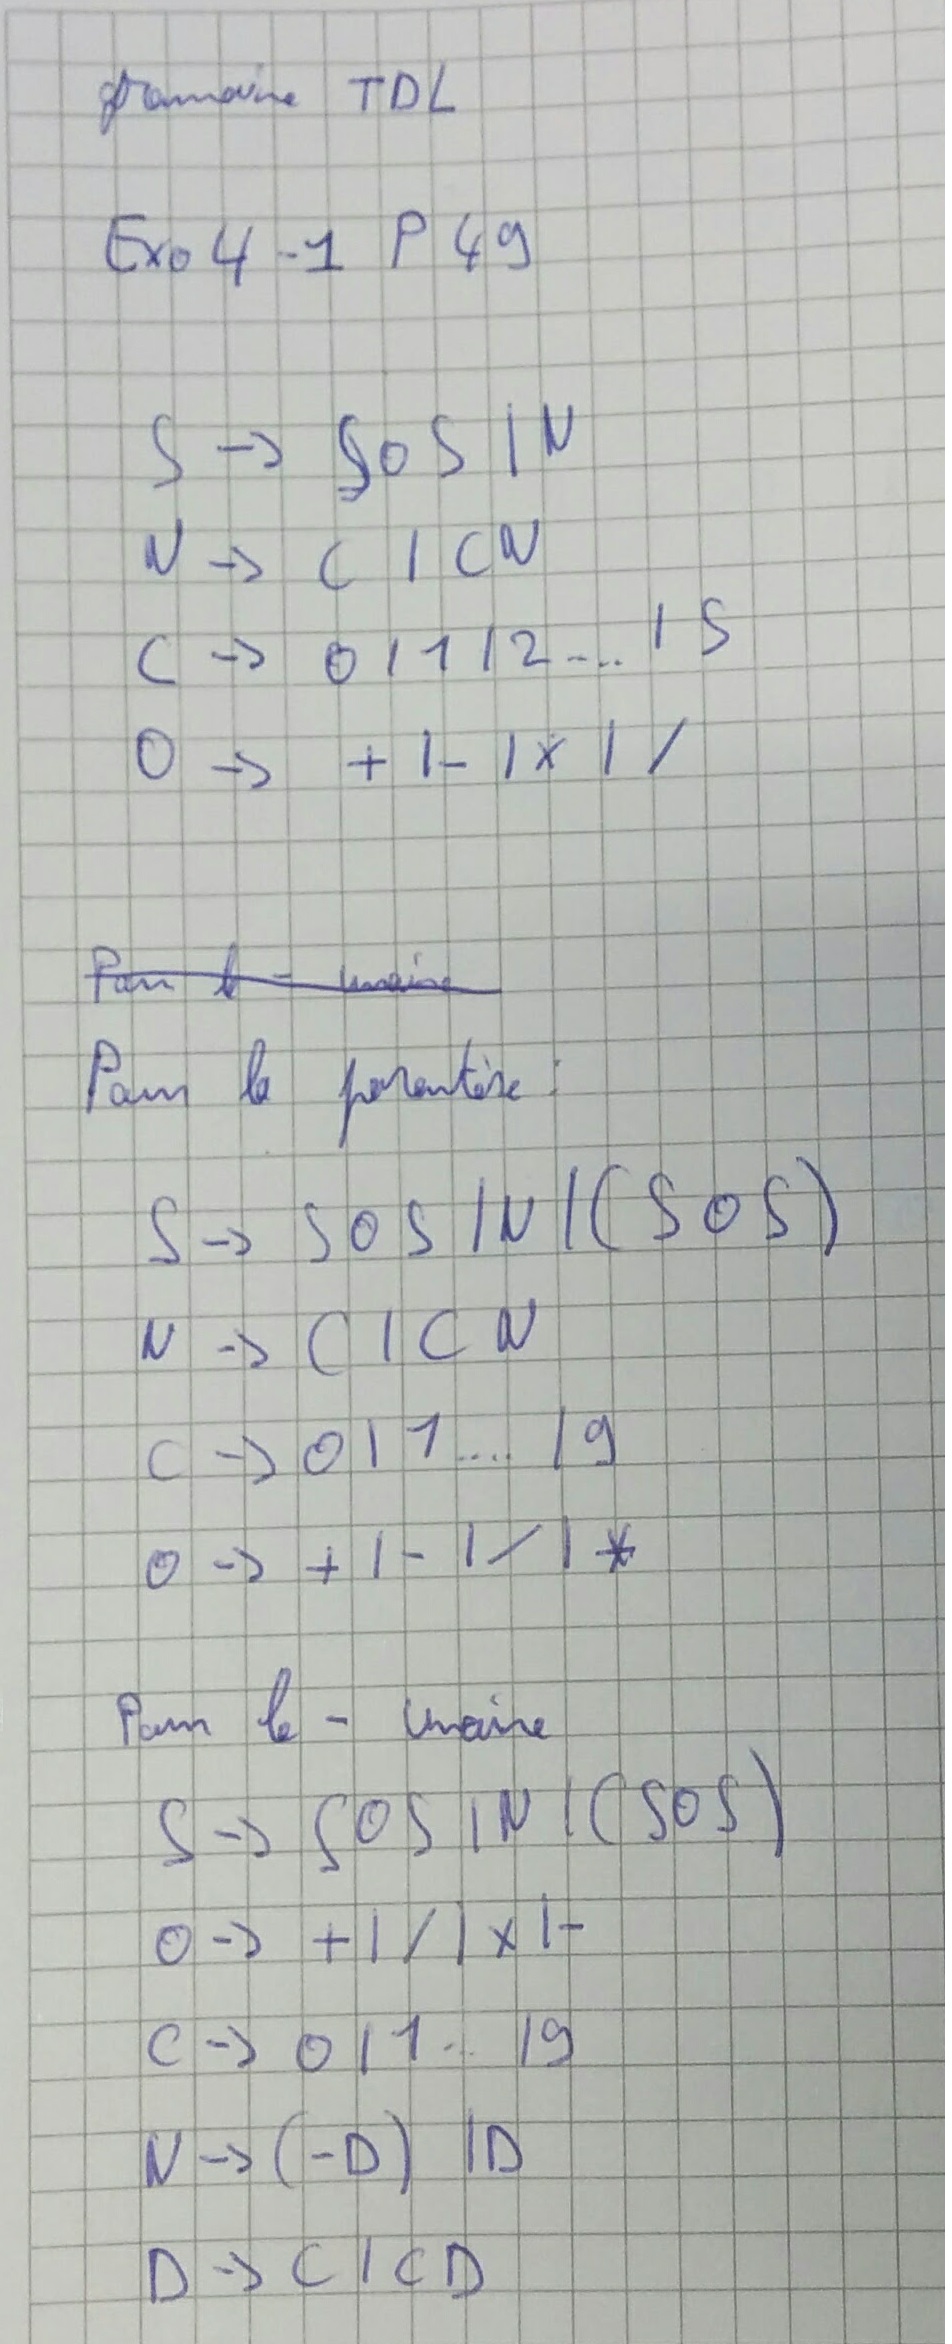 grammaire TDL
Exo 4-1 P 49
S -> SOS | N
N -> C | CN
C -> 0 | 1 | 2 .... | 9
O -> + | - | x | /
Pour le - unaire
Pour le parentèse :
S -> SOS | N | (SOS)
N -> C | CN
C -> 0 | 1 .... | 9
O -> + | - | / | *
Pour le - unaire
S -> SOS | N | (SOS)
O -> + | / | x | -
C -> 0 | 1 .. | 9
N -> (-D) | D
D -> C | CD